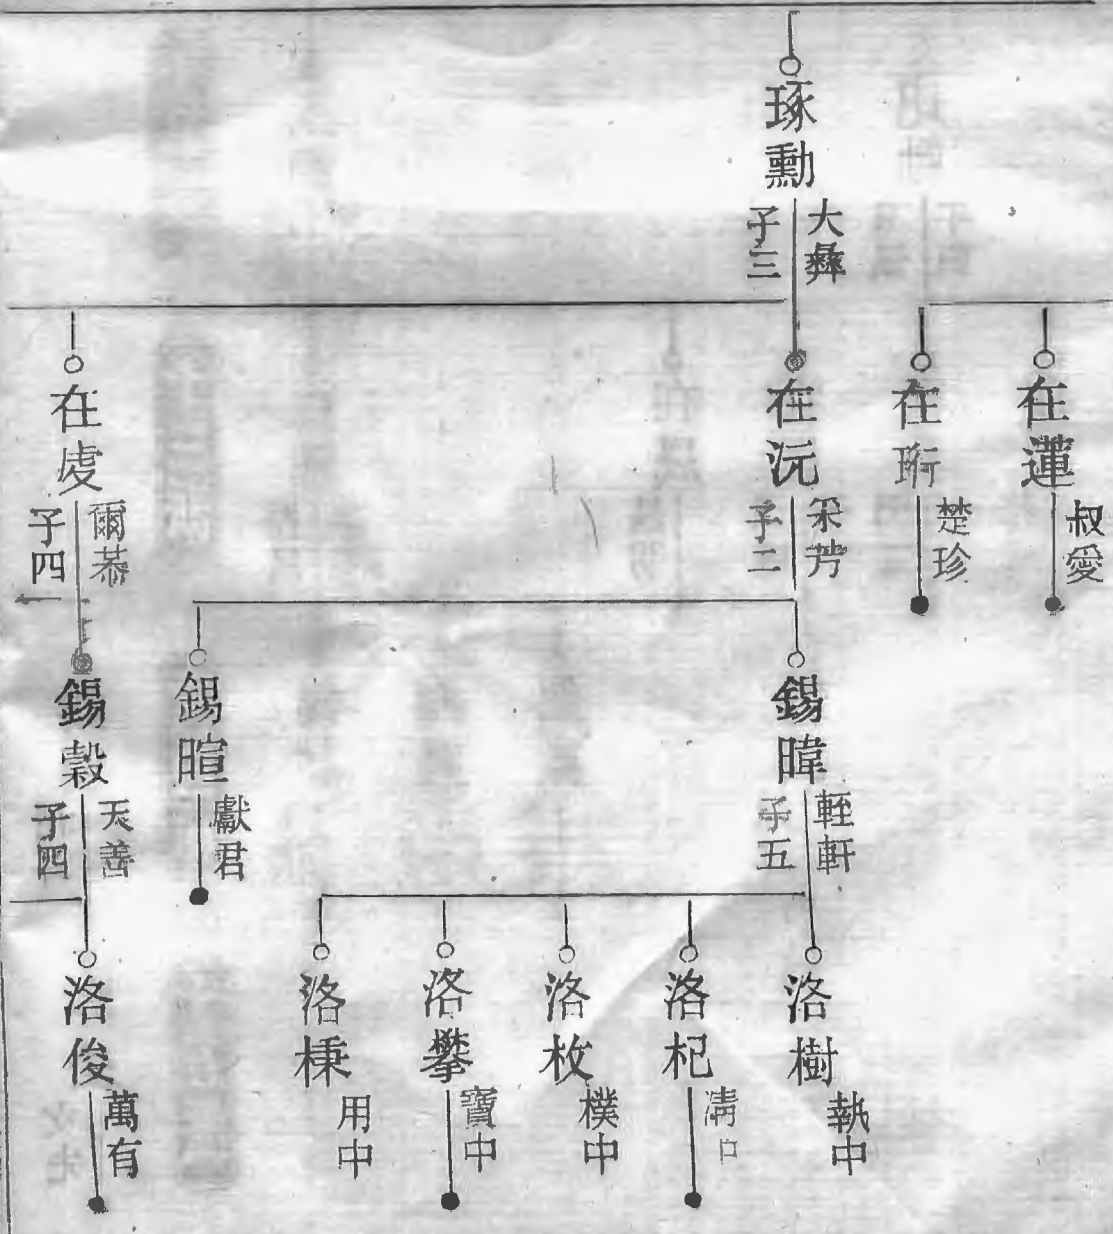 琢勳
大彝
子三
在蓮
叔愛
在珩
楚珍
在沅
采芳
子二
在虔
爾恭
子四
錫暐
輊軒
子五
錫暄
獻君
錫穀
天善
子四
洛樹
執中
洛杞
清中
洛枚
樸中
洛攀
寶中
洛秉
用中
洛俊
萬有